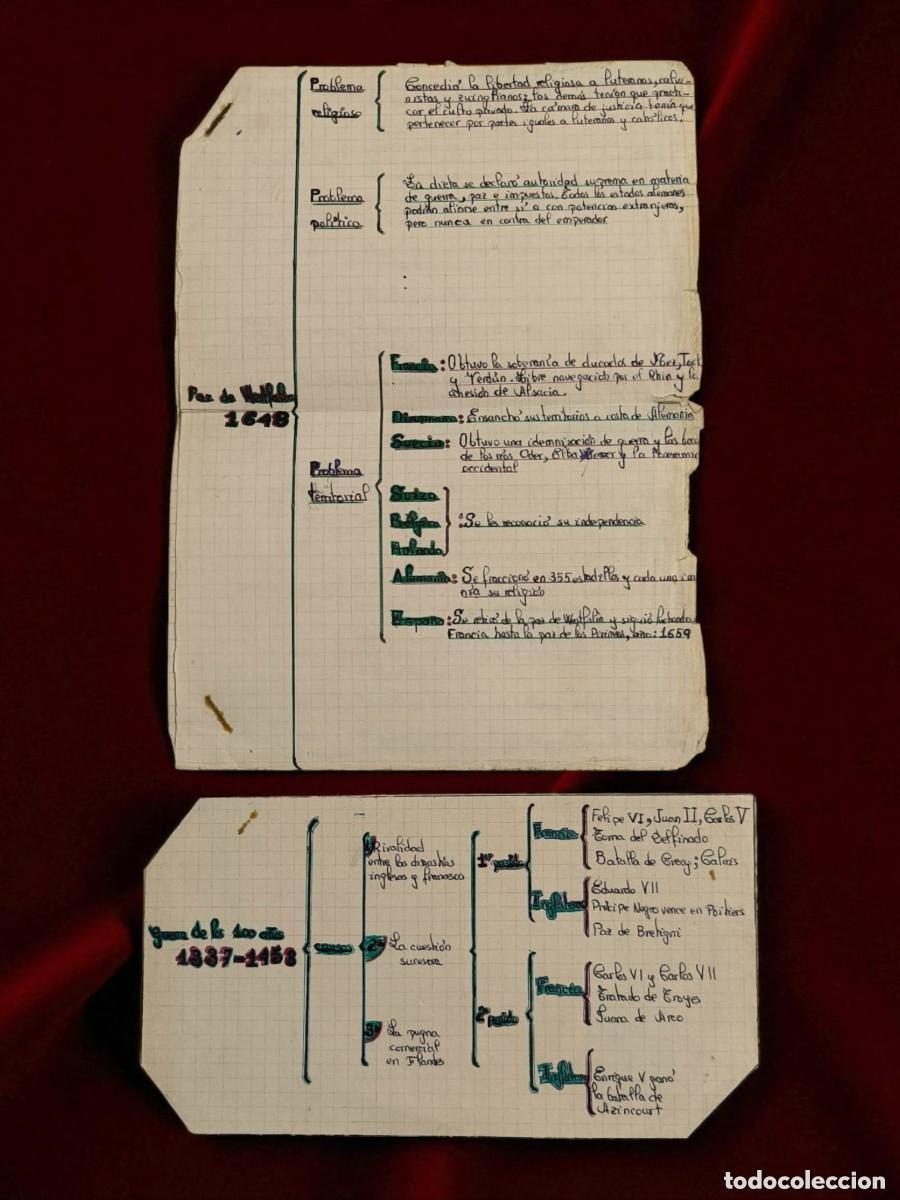 Problema
religioso
Concedió la libertad religiosa a luteranos, calvi-
nistas y zuinglianos; los demás tenían que practi-
car el culto privado. La cámara de justicia tenía que
pertenecer por partes iguales a luteranos y católicos.
Problema
político
La dieta se declaró autoridad suprema en materia
de guerra, paz e impuestos. Todos los estados alemanes
podían aliarse entre sí o con potencias extranjeras,
pero nunca en contra del emperador
Paz de Westfalia
1648
Problema
territorial
Francia: Obtuvo la soberanía de ducados de
y Verdún. Libre navegación por el Rhin y la
de Alsacia.
Dinamarca: Ensanchó sus territorios a costa de Alemania
Suecia: Obtuvo una idemnización de guerra y las
de los ríos Oder, Elba y la
occidental
Suiza
Bélgica
Holanda
: Se les reconoció su independencia
Alemania: Se fraccionó en 355 estadillos y cada uno
su religión
España: Se retiró de la paz de Westfalia y siguió luchando
Francia hasta la paz de los Pirineos, año: 1659
Guerra de los 100 años
1337-1453
causas
1ª Rivalidad
entre las dinastías
inglesas y francesa
2ª La cuestión
sucesora
3ª La pugna
comercial
en Flandes
1º periodo
Francia
Felipe VI, Juan II, Carlos V
Toma del Delfinado
Batalla de Crecy; Calais
Inglaterra
Eduardo VII
Príncipe Negro vence en Poitiers
Paz de Bretigni
2º periodo
Francia
Carlos VI y Carlos VII
Tratado de Troyes
Juana de Arco
Inglaterra
Enrique V ganó
la batalla de
Azincourt
todocoleccion